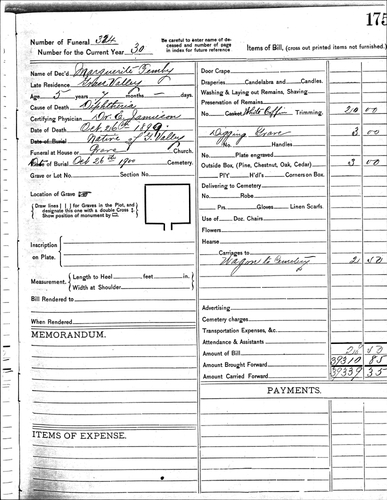 175
Number of Funeral 324
Number for the Current Year 30
Be carefull to enter name of deceased and number of page in index for future reference
Items of Bill, (cross out printed items not furnished.)
Name of Dec'd. Marguerite
Late Residence Valley
Age 5 years 7 months – days.
Cause of Death Diphtheria
Certifying Physician Dr. E. Jamieson
Date of Death Oct 26th 1899
Date of Burial Native of T. Valley
Funeral at House or Grave Church.
Date of Burial Oct 26th 1900 Cemetery.
Grave or Lot No. Section No.
Location of Grave
Draw lines for Graves in the Plot, and designate this one with a double Cross
Show position of monument by
Inscription on Plate.
Measurement. Length to Heel feet in.
Width at Shoulder "
Bill Rendered to
When Rendered
MEMORANDUM.
ITEMS OF EXPENSE.
Door Crape
Draperies Candelabra and Candles.
Washing & Laying out Remains, Shaving
Preservation of Remains
No. Casket White Coffin Trimming. 20 00
Digging Grave 3 00
No. Handles
No. Plate engraved
Outside Box, (Pine, Chestnut, Oak, Cedar) 3 00
P'l'y. H'd'l's Corners on Box.
Delivering to Cemetery
No. Robe
Prs. Gloves Linen Scarfs.
Use of Doz. Chairs
Flowers
Hearse
Carriages to
Wagon to Cemetery 2 50
Advertising
Cemetery charges
Transportation Expenses, &c.
Attendance & Assistants
Amount of Bill 50
Amount Brought Forward 39310 85
Amount Carried Forward 39339 35
PAYMENTS.